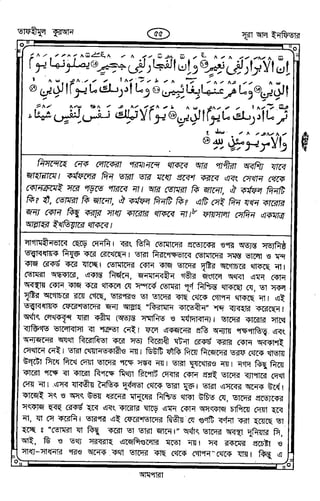 তাফহীমুল কুরআন
৫৫
সূরা আল ইনফিতার
إِنَّ الْأَبْرَارَ لَفِي نَعِيمٍ ۝ وَإِنَّ الْفُجَّارَ لَفِي جَحِيمٍ ۝ يَصْلَوْنَهَا يَوْمَ
الدِّينِ ۝ وَمَا هُمْ عَنْهَا بِغَائِبِينَ ۝ وَمَا أَدْرَاكَ مَا يَوْمُ الدِّينِ ۝
ثُمَّ مَا أَدْرَاكَ مَا يَوْمُ الدِّينِ ۝ يَوْمَ لَا تَمْلِكُ نَفْسٌ لِنَفْسٍ شَيْئًا
وَالْأَمْرُ يَوْمَئِذٍ لِلَّهِ
নিসন্দেহে নেক লোকেরা পরমানন্দে থাকবে আর পাপীরা অবশ্যি যাবে
জাহান্নামে। কর্মফলের দিন তারা তার মধ্যে প্রবেশ করবে এবং সেখান থেকে
কোনক্রমেই সরে পড়তে পারবে না। আর তোমরা কি জানো, ঐ কর্মফল দিনটি
কি? হাঁ, তোমরা কি জানো, ঐ কর্মফল দিনটি কি? এটি সেই দিন যখন কারোর
জন্য কোন কিছু করার সাধ্য কারোর থাকবে না। ফায়সালা সেদিন একমাত্র
আল্লাহর ইখতিয়ারে থাকবে।
লাগামহীনভাবে ছেড়ে দেননি। বরং তিনি তোমাদের প্রত্যেকের ওপর অত্যন্ত সত্যনিষ্ঠ
তত্ত্বাবধায়ক নিযুক্ত করে রেখেছেন। তারা নিরপেক্ষভাবে তোমাদের সমস্ত ভালো ও মন্দ
কাজ রেকর্ড করে যাচ্ছে। তোমাদের কোন কাজ তাদের দৃষ্টির অগোচরে থাকছে না।
তোমরা অন্ধকারে, একান্ত নির্জনে, জনমানবহীন গভীর জংগলে অথবা এমন কোন
অবস্থায় কোন কাজ করে থাকলে যে সম্পর্কে তোমরা পূর্ণ নিশ্চিন্ত থাকছো যে, তা সকল
সৃষ্টির অগোচরে রয়ে গেছে, তারপরও তা তাদের কাছ থেকে গোপন থাকছে না। এই
তত্ত্বাবধায়ক ফেরেশতাদের জন্য আল্লাহ "কিরামান কাতেবীন" শব্দ ব্যবহার করেছেন।
অর্থাৎ লেখকবৃন্দ যারা করীম (অত্যন্ত সম্মানিত ও মর্যাদাবান)। তাদের কারোর সাথে
ব্যক্তিগত ভালোবাসা বা শত্রুতা নেই। ফলে একজনের প্রতি অন্যায় পক্ষপাতিত্ব এবং
অন্যজনের অযথা বিরোধিতা করে সত্য বিরোধী ঘটনা রেকর্ড করার কোন অবকাশই
সেখানে নেই। তারা খেয়ানতকারীও নয়। ডিউটি ফাঁকি দিয়ে নিজেদের তরফ থেকে খাতায়
উল্টো সিধে লিখে দেয়া তাদের পক্ষে সম্ভব নয়। তারা ঘুষখোরও নয়। নগদ কিছু নিয়ে
কারো পক্ষে বা কারো বিপক্ষে মিথ্যা রিপোর্ট দেবার কোন প্রশ্নই তাদের ব্যাপারে দেখা
দেয় না। এসব যাবতীয় নৈতিক দুর্বলতা থেকে তারা মুক্ত। তারা এসবের অনেক উর্ধে।
কাজেই সৎ ও অসৎ উভয় ধরনের মানুষের নিশ্চিন্ত থাকা উচিত যে, তাদের প্রত্যেকের
সৎকাজ হুবহু রেকর্ড হবে এবং কারোর ঘাড়ে এমন কোন অসৎকাজ চাপিয়ে দেয়া হবে
না, যা সে করেনি। তারপর এই ফেরেশতাদের দ্বিতীয় যে গুণটি বর্ণনা করা হয়েছে তা
হচ্ছে ঃ "তোমরা যা কিছু করো তা তারা জানে।" অর্থাৎ তাদের অবস্থা দুনিয়ার সি,
আই, ডি ও তথ্য সরবরাহ এজেন্সিগুলোর মতো নয়। সব রকমের প্রচেষ্টা ও
সাধ্য-সাধনার পরও অনেক কথা তাদের কাছ থেকে গোপন থেকে যায়। কিন্তু এ
আমপারা